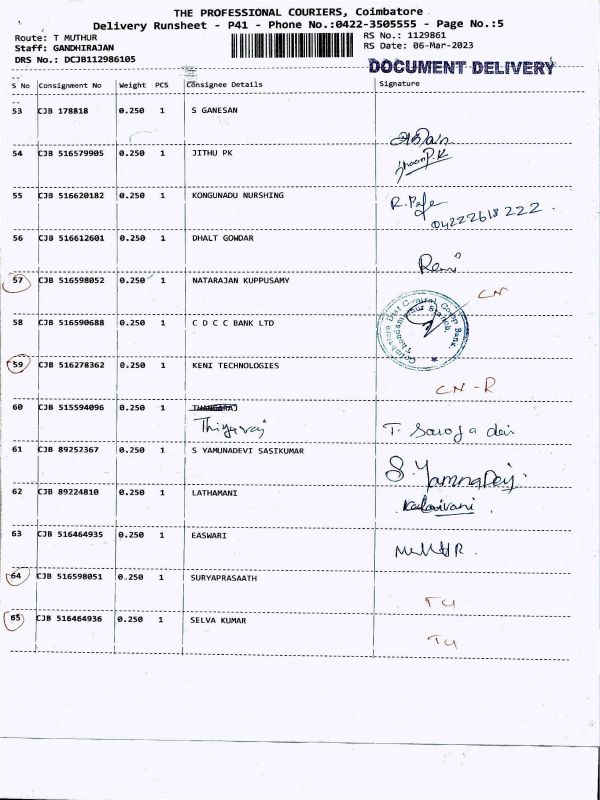 THE PROFESSIONAL COURIERS, Coimbatore
Delivery Runsheet - P41 - Phone No.:0422-3505555 - Page No.:5
Route: T MUTHUR
Staff: GANDHIRAJAN
DRS No.: DCJB112986105
RS No.: 1129861
RS Date: 06-Mar-2023
DOCUMENT DELIVERY
S No Consignment No Weight PCS Consignee Details Signature
53 CJB 178818 0.250 1 S GANESAN
54 CJB 516579905 0.250 1 JITHU PK
55 CJB 516620182 0.250 1 KONGUNADU NURSHING
04222618222.
56 CJB 516612601 0.250 1 DHALT GOWDAR
57 CJB 516598052 0.250 1 NATARAJAN KUPPUSAMY CN
58 CJB 516590688 0.250 1 C D C C BANK LTD
59 CJB 516278362 0.250 1 KENI TECHNOLOGIES CN-R
60 CJB 515594096 0.250 1 THANGARAJ
Thiyaraj T. Saroja devi
61 CJB 89252367 0.250 1 S YAMUNADEVI SASIKUMAR
S. Yamna Devi
62 CJB 89224810 0.250 1 LATHAMANI
Kalaivani.
63 CJB 516464935 0.250 1 EASWARI
64 CJB 516598051 0.250 1 SURYAPRASAATH
65 CJB 516464936 0.250 1 SELVA KUMAR